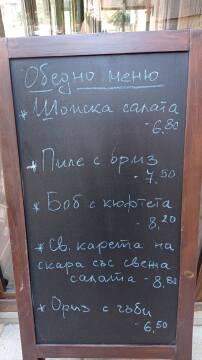 Обедно меню
* Шопска салата
- 6,80
* Пиле с ориз
- 7,50
* Боб с кюфтета
- 8,20
* Св. карета на
скара със свежа
салата - 8,80
* Ориз с гъби
- 6,50